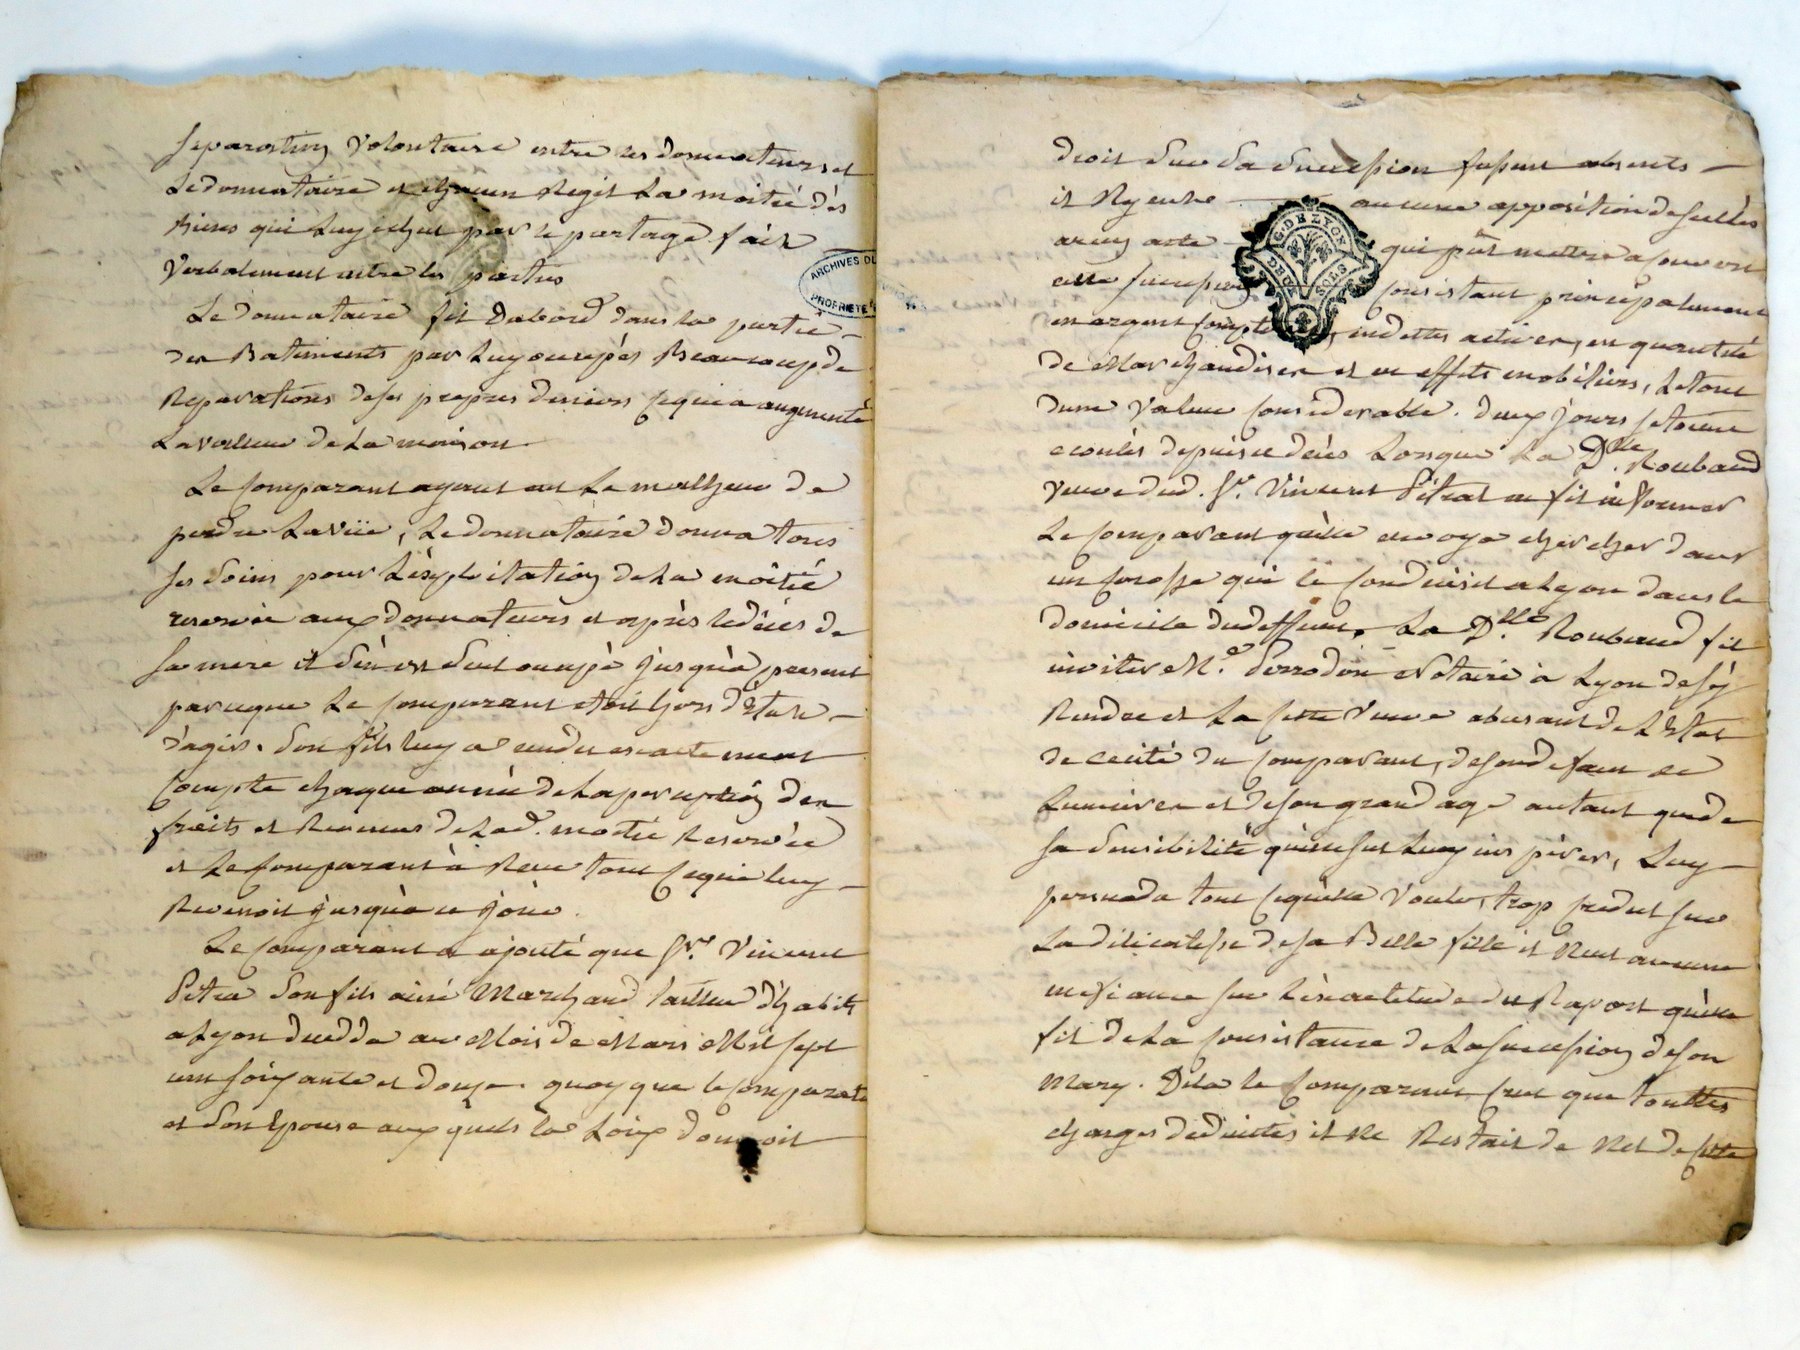 separation volontaire entre les donnateurs et
Le donnataire et chacun Regit La moitié dès
biens qui Luy échut par le partage fait
verbalement entre les parties
Le donnataire fit Dabord dans la partie
des Batiments par Luy occupés Beaucoup de
Reparations de ses propres deniers ce qui a augmenté
La valleur de La maison
Le comparant ayant eut Le malheur de
perdre La vüe, Le donnataire donna tous
ses soins pour L'èxploitation de La moitié
reservée aux donnateurs et après le décès de
sa mere il s'en est seul occupé jusqu'à present
parceque Le comparant étoit hors d'état
d'agir. Son fils luy a rendu exactement
Compte chaque année de La perception des
fruits et Revenus de Lad. moitié Reservée
et Le Comparant à Reçu tout ce qui luy
Revenoit jusqu'à ce jour.
Le comparant a ajouté que Sr. Vincent
Pitra son fils ainé Marchand tailleur d'habits
a Lyon deceda au Mois de Mars Mil sept
cent soixante et douze. quoyque le comparant
et son Epouse auxquels la Loix donnoit
droit sur sa succession fussent absents
il N'y eut aucune apposition de scellés
aucun acte qui put mettre a couvert
cette succession consistant principalement
en argent comptant, en dettes actives, en quantité
de Marchandises et en effets mobiliers, Le tout
dune valeur considerable. deux jours s'etoient
ecoulés depuis ce décès Lorsque La Dlle. Roubaud
veuve dud. Sr. Vincent Pitrat en fit informer
Le comparant quelle envoya chercher dans
un carosse qui le conduisit a Lyon dans le
domicile du deffunt. La Dlle. Roubaud fit
inviter Me. Perrodon Notaire à Lyon de s'y
Rendre et La cette veuve abusant de L'état
de cecité du comparant, de son defaut de
Lumieres et de son grand age autant que de
sa sensibilité qu'elle sut Luy inspirer, Luy
persuada tout ce qu'elle voulut, trop credul sur
La délicatesse de sa Belle fille il N'eut aucune
mefiance sur L'exactitude du Raport qu'elle
fit de La consistance de La succession de son
Mary. De la le Comparant crut que touttes
charges deduittes il Ne Restait de Net de cette
G. DE LYON
DEUX SOLS
ARCHIVES DU
PROPRIETE